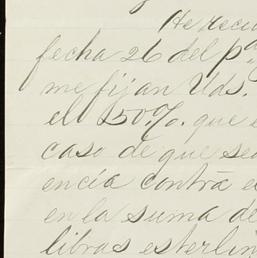 He recibi
fecha 26 del pa
me fijan Uds.
el 50%. que e
caso de que sea
encia contra e
en la suma de
libras esterlin